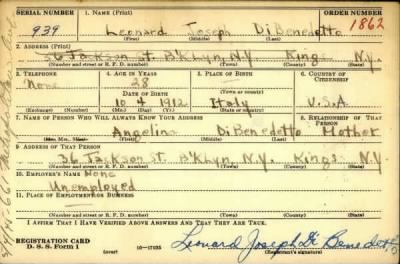 SERIAL NUMBER 1. NAME (Print) ORDER NUMBER
939 Leonard Joseph Di Benedetto 1862
(First) (Middle) (Last)
2. ADDRESS (Print)
36 Jackson St. B'klyn, N.Y. Kings N.Y.
(Number and street or R. F. D. number) (Town) (County) (State)
3. TELEPHONE 4. AGE IN YEARS 5. PLACE OF BIRTH 6. COUNTRY OF CITIZENSHIP
None 28
DATE OF BIRTH (Town or county)
10 4 1912 Italy U.S.A
(Exchange) (Number) (Mo.) (Day) (Yr.) (State or country)
7. NAME OF PERSON WHO WILL ALWAYS KNOW YOUR ADDRESS 8. RELATIONSHIP OF THAT PERSON
Angelina Di Benedetto Mother
(Mr., Mrs., Miss) (First) (Middle) (Last)
9. ADDRESS OF THAT PERSON
36 Jackson St. B'klyn, N.Y. Kings N.Y.
(Number and street or R. F. D. number) (Town) (County) (State)
10. EMPLOYER'S NAME None
Unemployed
11. PLACE OF EMPLOYMENT OR BUSINESS
(Number and street or R. F. D. number) (Town) (County) (State)
I AFFIRM THAT I HAVE VERIFIED ABOVE ANSWERS AND THAT THEY ARE TRUE.
REGISTRATION CARD
D. S. S. Form 1 (over) 16-17105 Leonard Joseph Di Benedetto